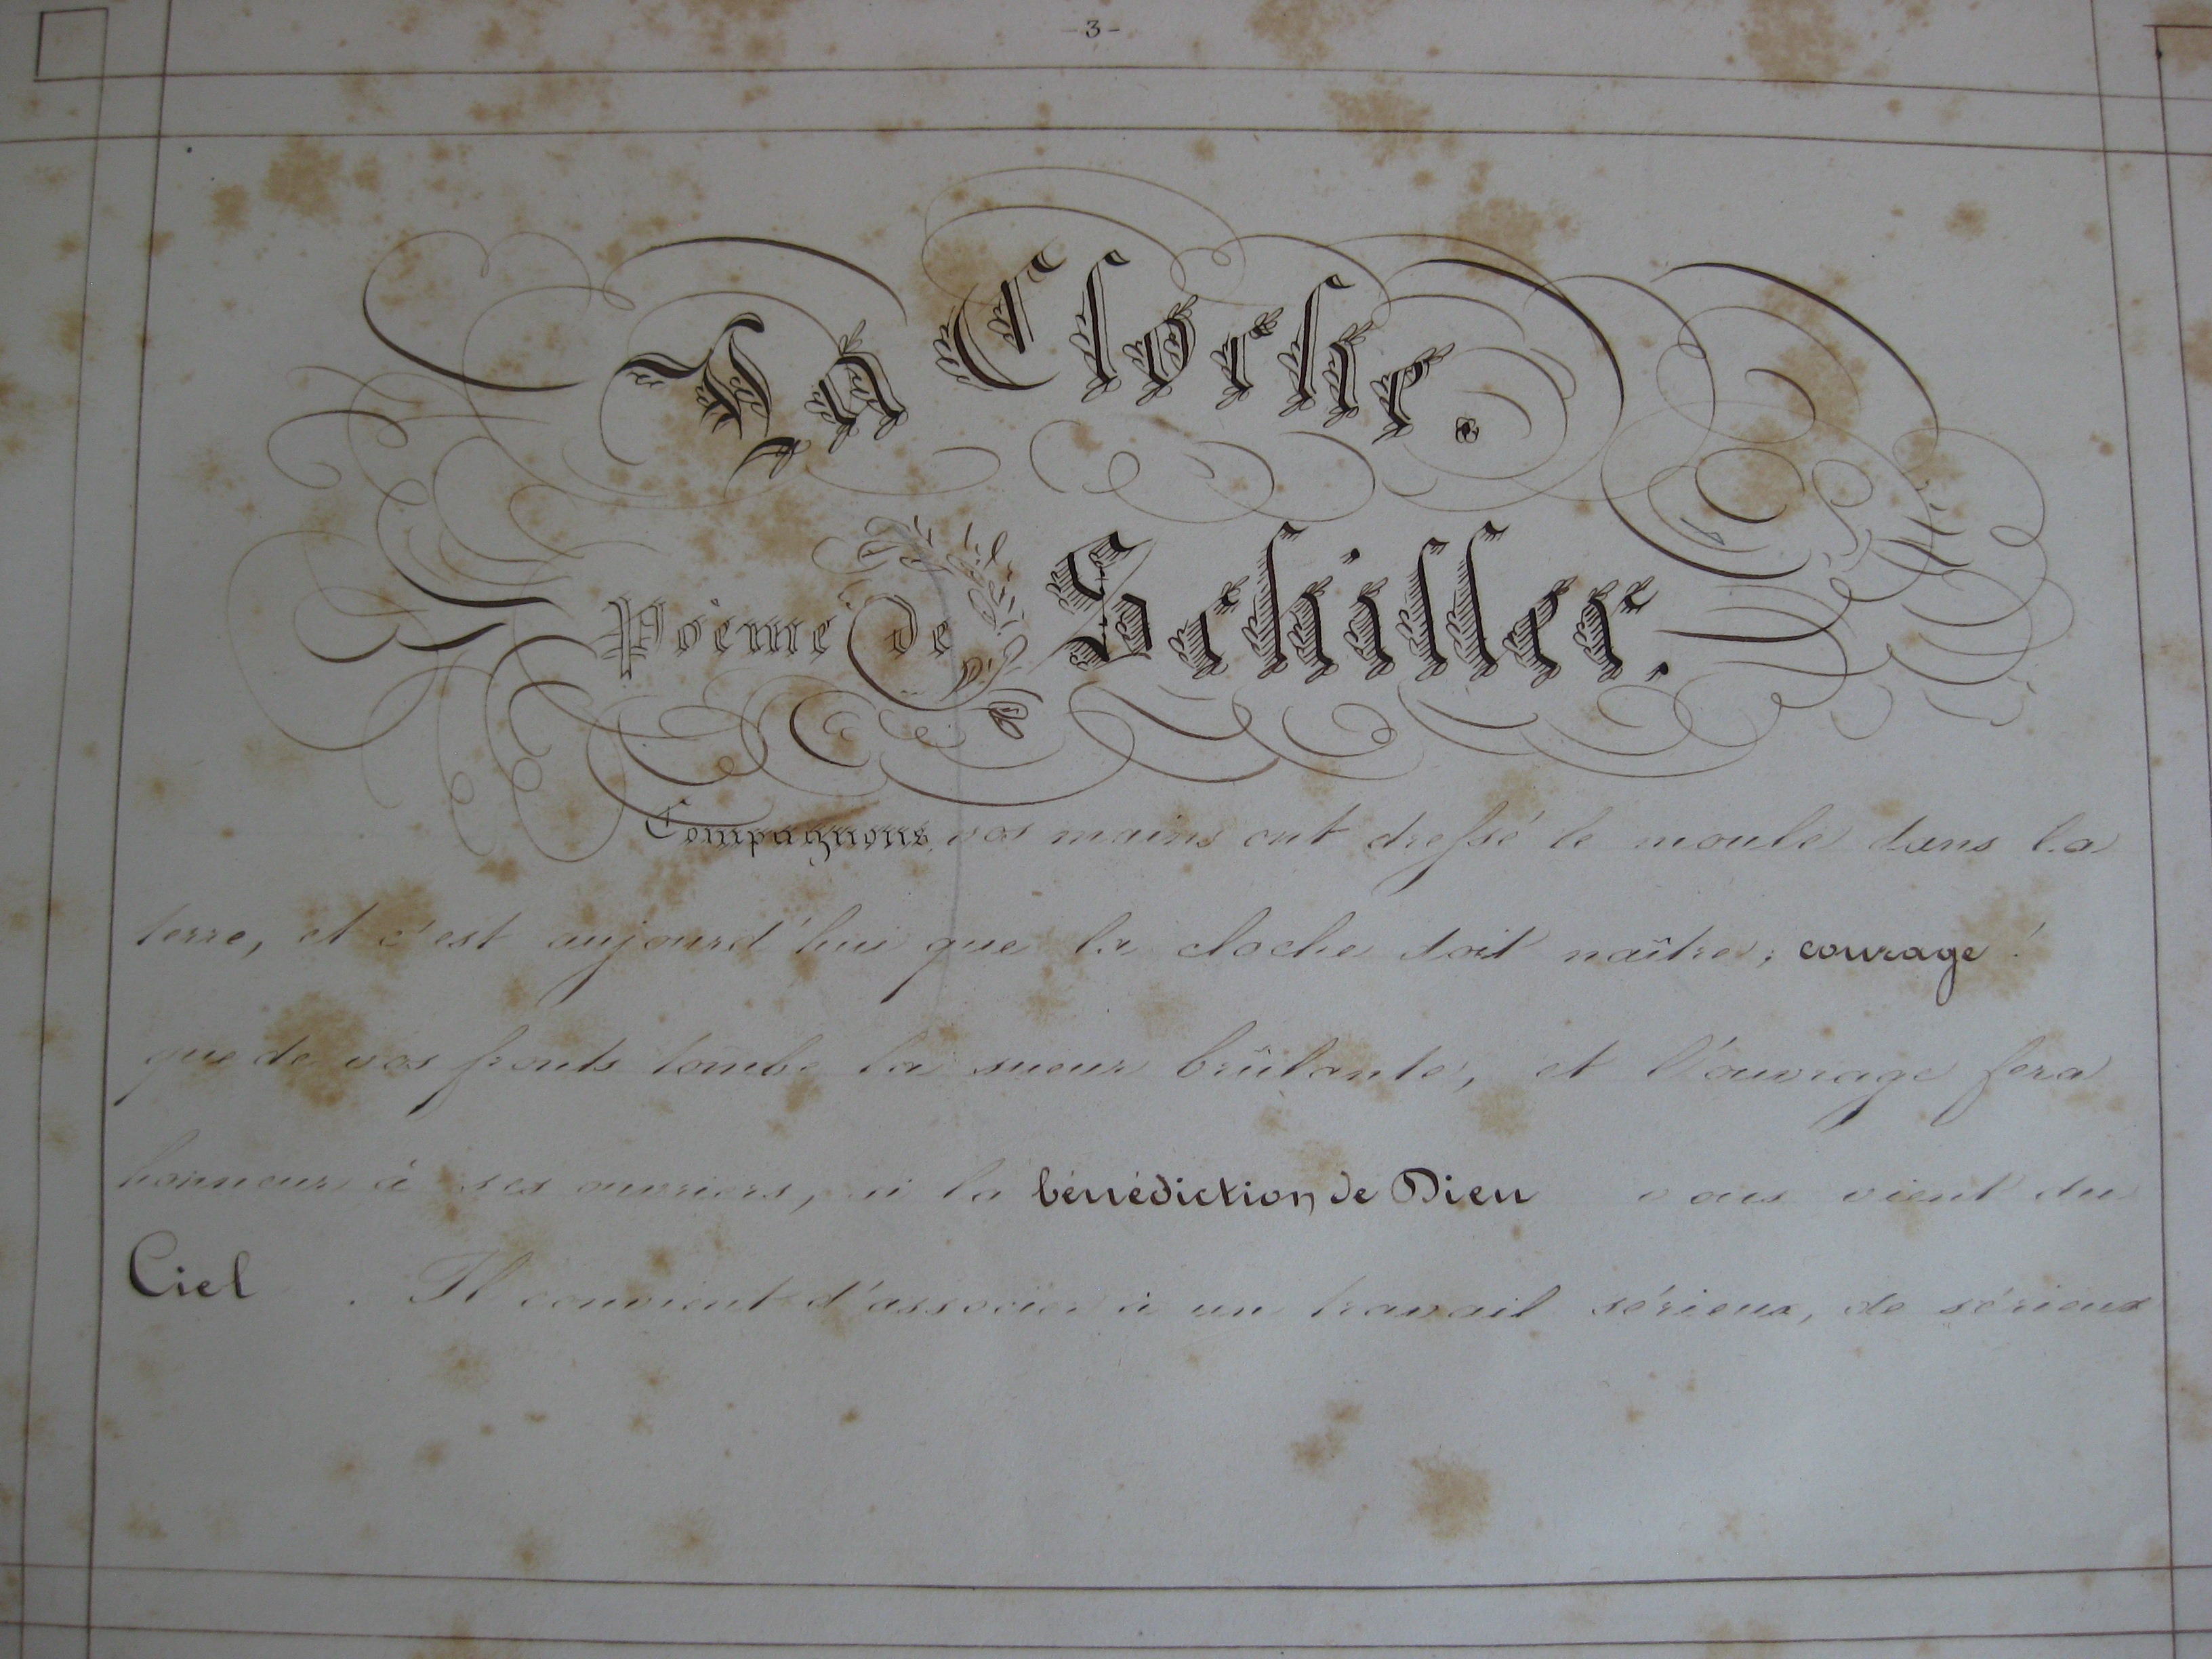 -3-
La Cloche.
Poème de Schiller.
Compagnons, vos mains ont dressé le moule dans la
terre, et c'est aujourd'hui que la cloche doit naître; courage !
que de vos fronts tombe la sueur brûlante, et l'ouvrage fera
honneur à ses ouvriers, si la bénédiction de Dieu vous vient du
Ciel . Il convient d'associer à un travail sérieux, de sérieux